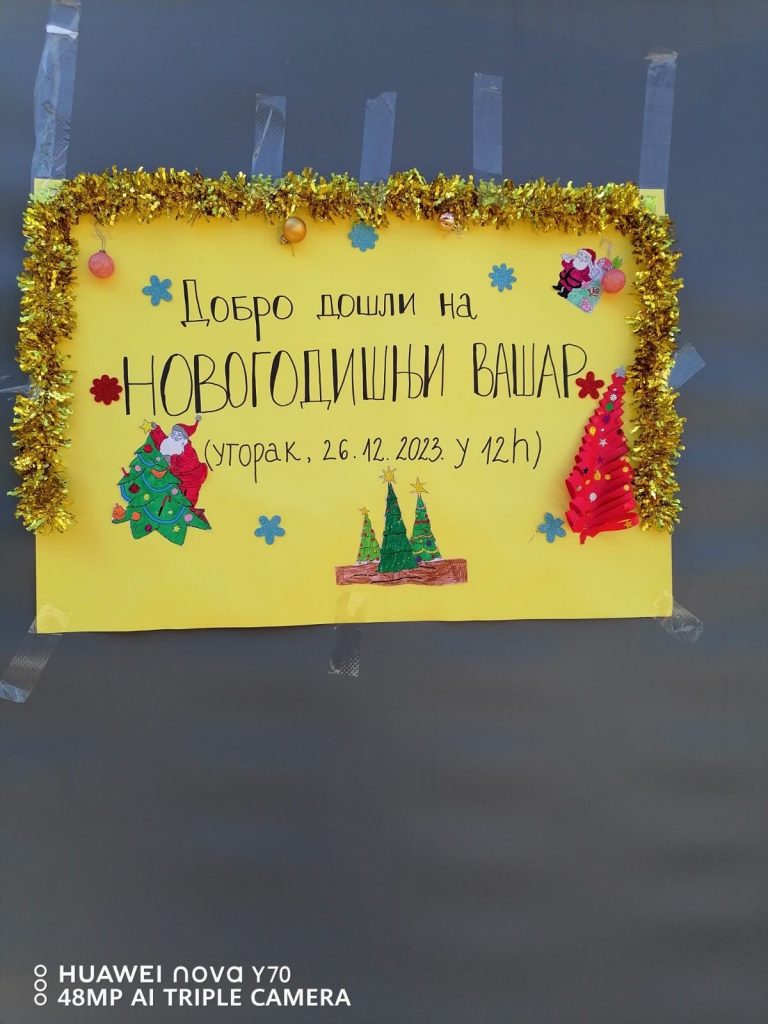 Добро дошли на
НОВОГОДИШЊИ ВАШАР
(уторак, 26.12.2023. у 12h)
HUAWEI nova Y70
48MP AI TRIPLE CAMERA